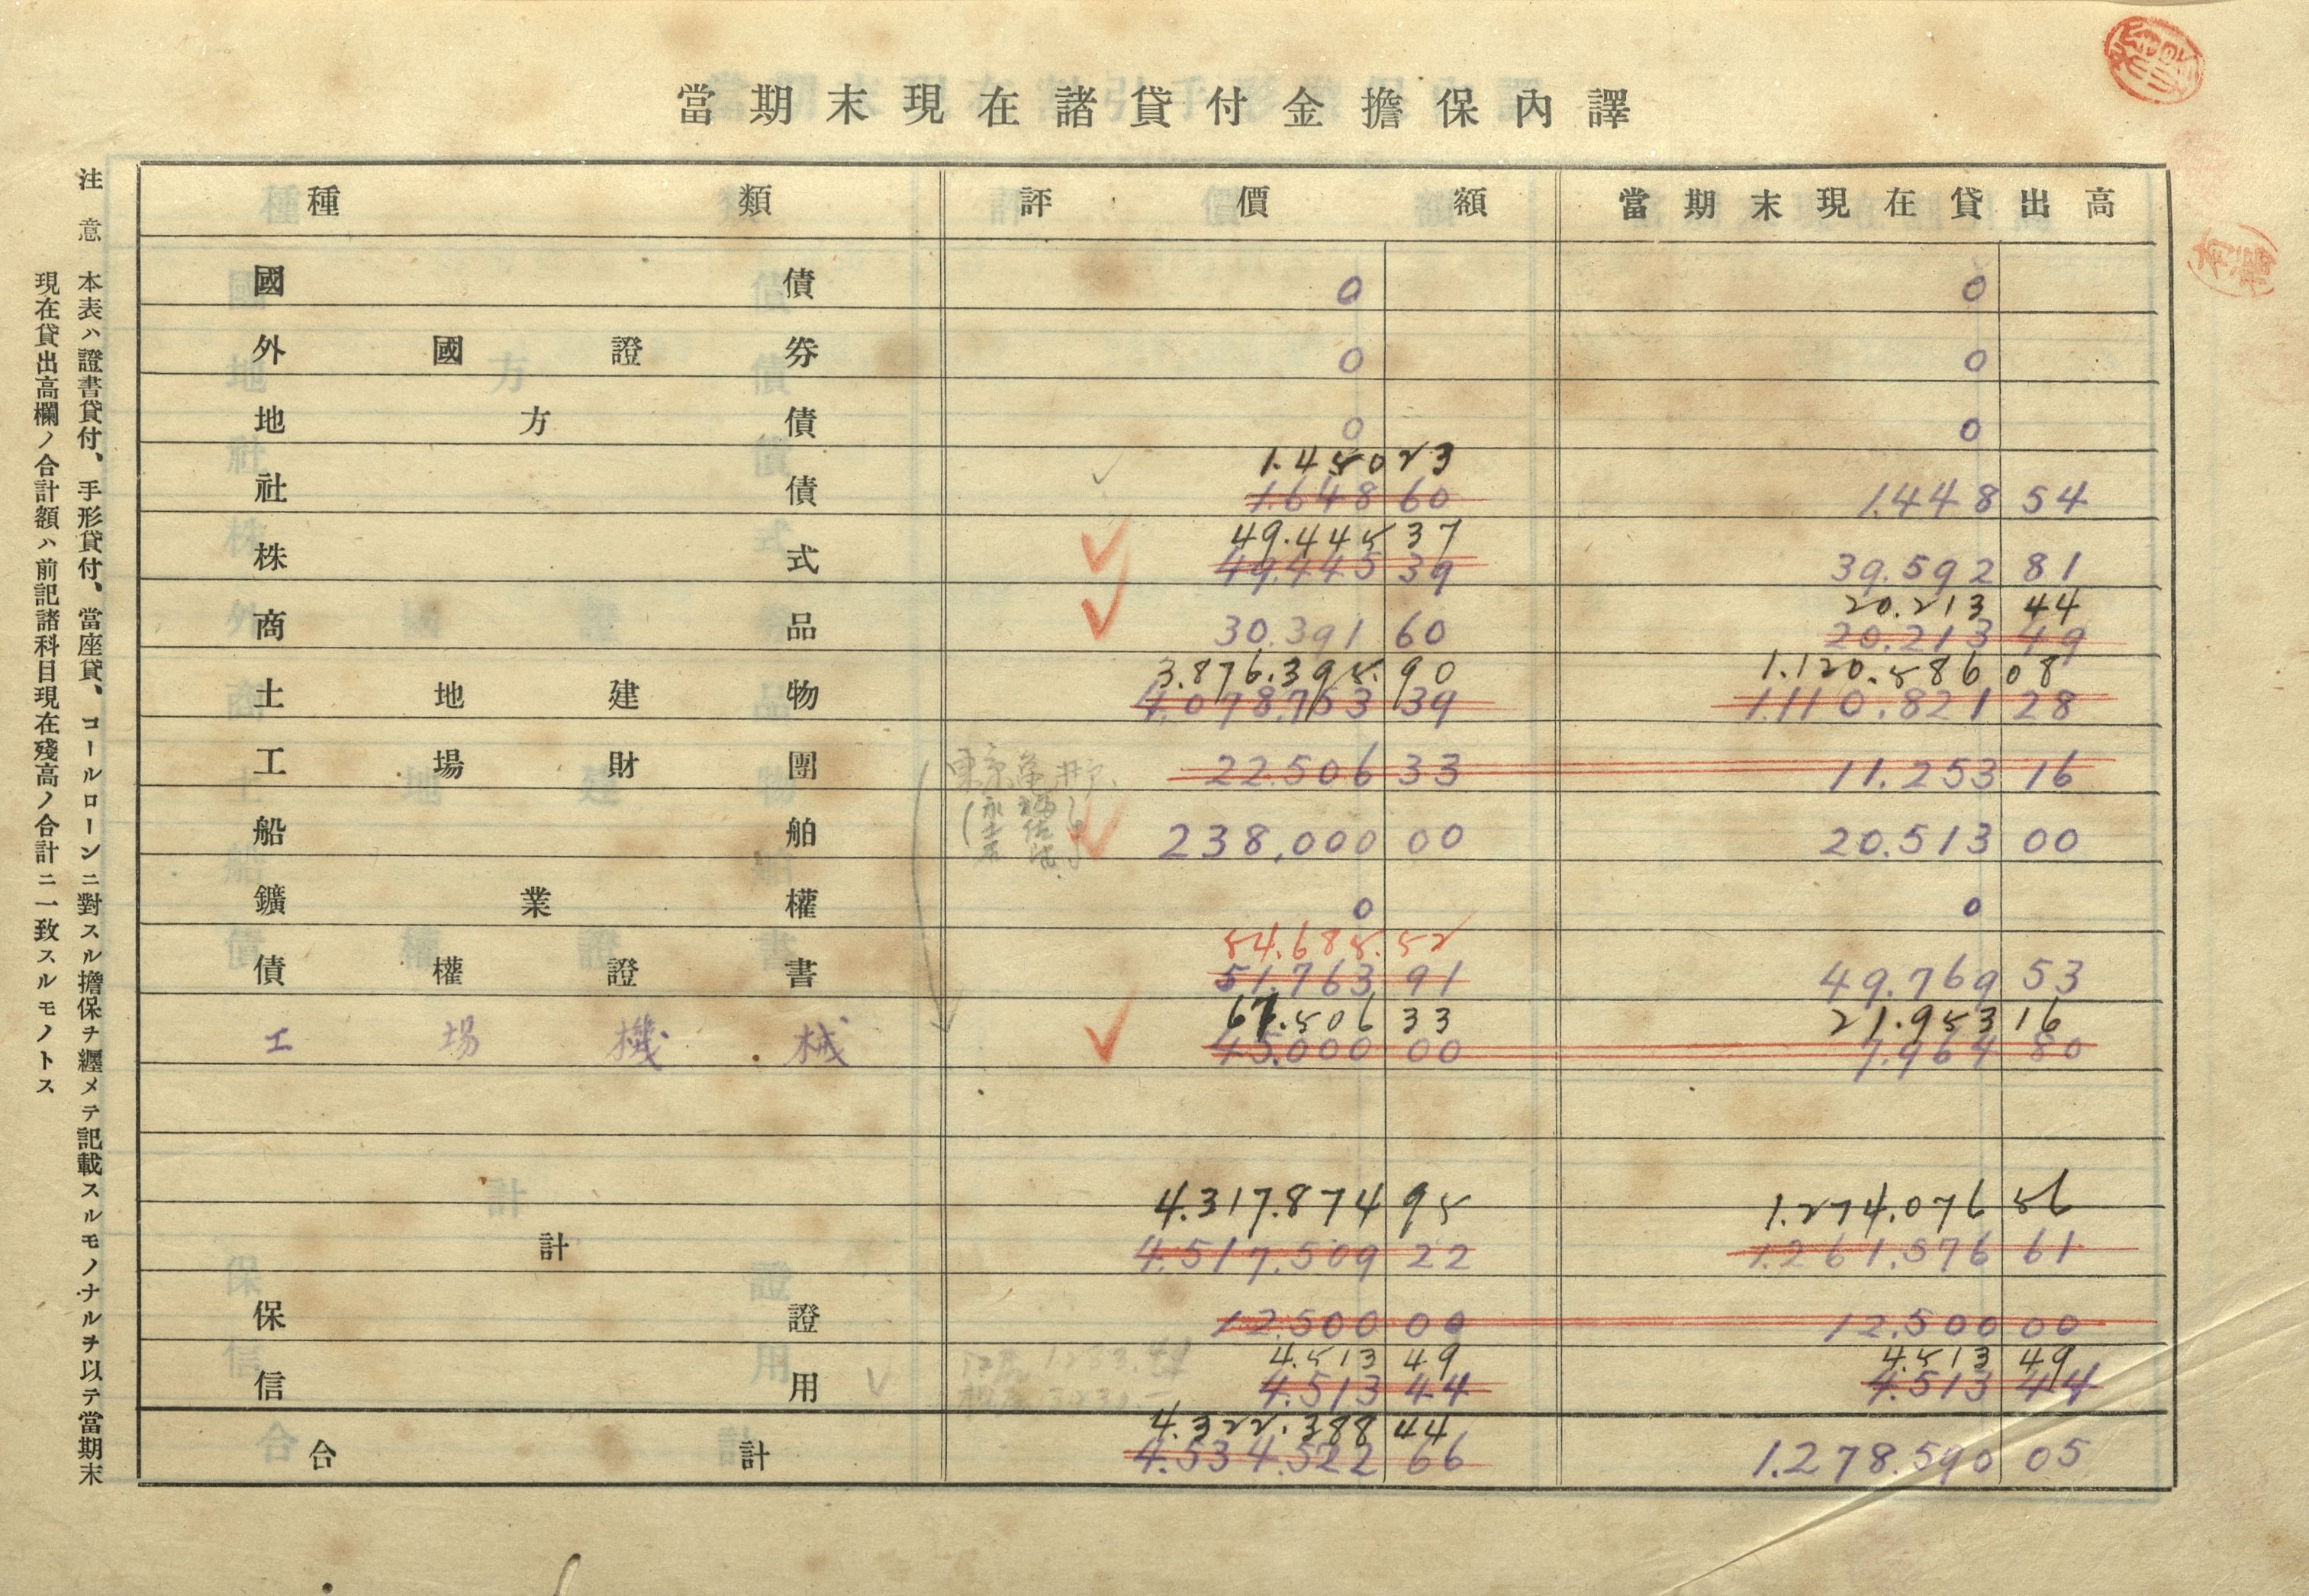 當期末現在諸貸付金擔保內譯
種類 評價額 當期末現在貸出高
國債 0 0
外國證券 0 0
地方債 0 0
1.450 23
社債 1.648 60 1.448 54
49.445 37
株式 49.445 39 39.592 81
20.213 44
商品 30.391 60 20.213 49
3.876.395.90 1.120.586 08
土地建物 4.078.753 39 1.110.821 28
工場財團 22.506 33 11.253 16
船舶 238,000 00 20.513 00
鑛業權 0 0
54.685.52
債權證書 51.763 91 49.769 53
67.506 33 21.953 16
工場機械 45.000 00 7.964 80
4.317.874 95 1.274.076 56
計 4.517.509 22 1.261.576 61
保證 12.500 00 12.500 00
4.513 49 4.513 49
信用 4.513 44 4.513 44
4.322.388 44
合計 4.534.522 66 1.278.590 05
注意 本表ハ證書貸付、手形貸付、當座貸、コールローンニ對スル擔保ヲ纒メテ記載スルモノナルヲ以テ當期末
現在貸出高欄ノ合計額ハ前記諸科目現在殘高ノ合計ニ一致スルモノトス